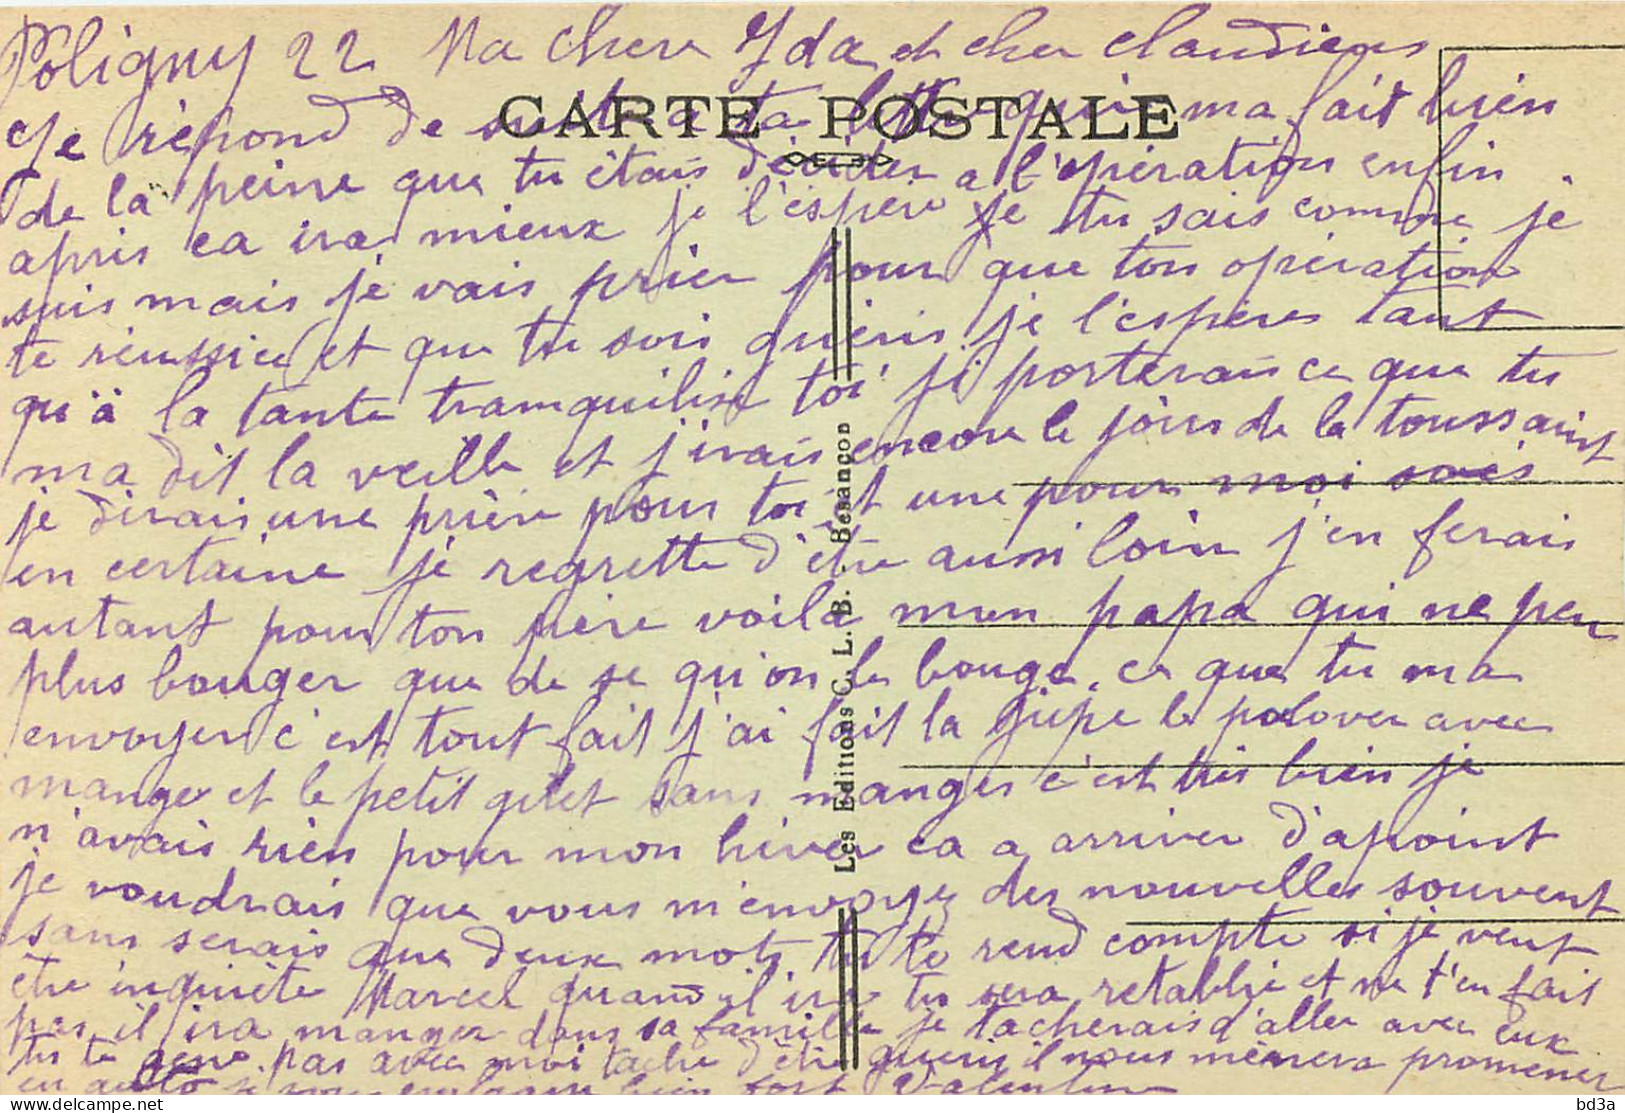 Poligny 22 Ma chere Yda et cher claudieus
CARTE POSTALE
Je répond de suite a ta lettre qui ma fait bien
de la peine que tu étais décider a l'opération enfin
apris ca ira mieux je l'espère je tu sais comme je
suis mais je vais prier pour que ton opération
te réussice et que tu sois guéris je l'espères tant
qu'à la tante tranquilise toi ji porterais ce que tu
ma dit la veille et j'irais encore le jours de la toussaint
je dirais une prière pour toi et une pour moi sois
en certaine je regrette d'être aussi loin j'en ferais
autant pour ton père voilà mon papa qui ne peu
plus bouger que de se qu'on le bouge, ce que tu ma
envoyer c'est tout fait j'ai fait la jupe le polover avec
mange et le petit gilet sans manges c'est tris bien je
n'avais rien pour mon hiver ca a arriver d'apoint
je voudrais que vous m'envoyez des nouvelles souvent
sans serais que deux mots tu te rend compte si je veut
être inquiète Marcel quand il ira tu sera retablie et ne t'en fait
pas il ira manger dans sa famille je tacherais d'aller avec eux
tu te gene pas avec moi tache d'être gueris il nous mènera promener
en auto je vous embrasse bien fort Valentine
Les Editions C. L. B. Besançon
bd3a